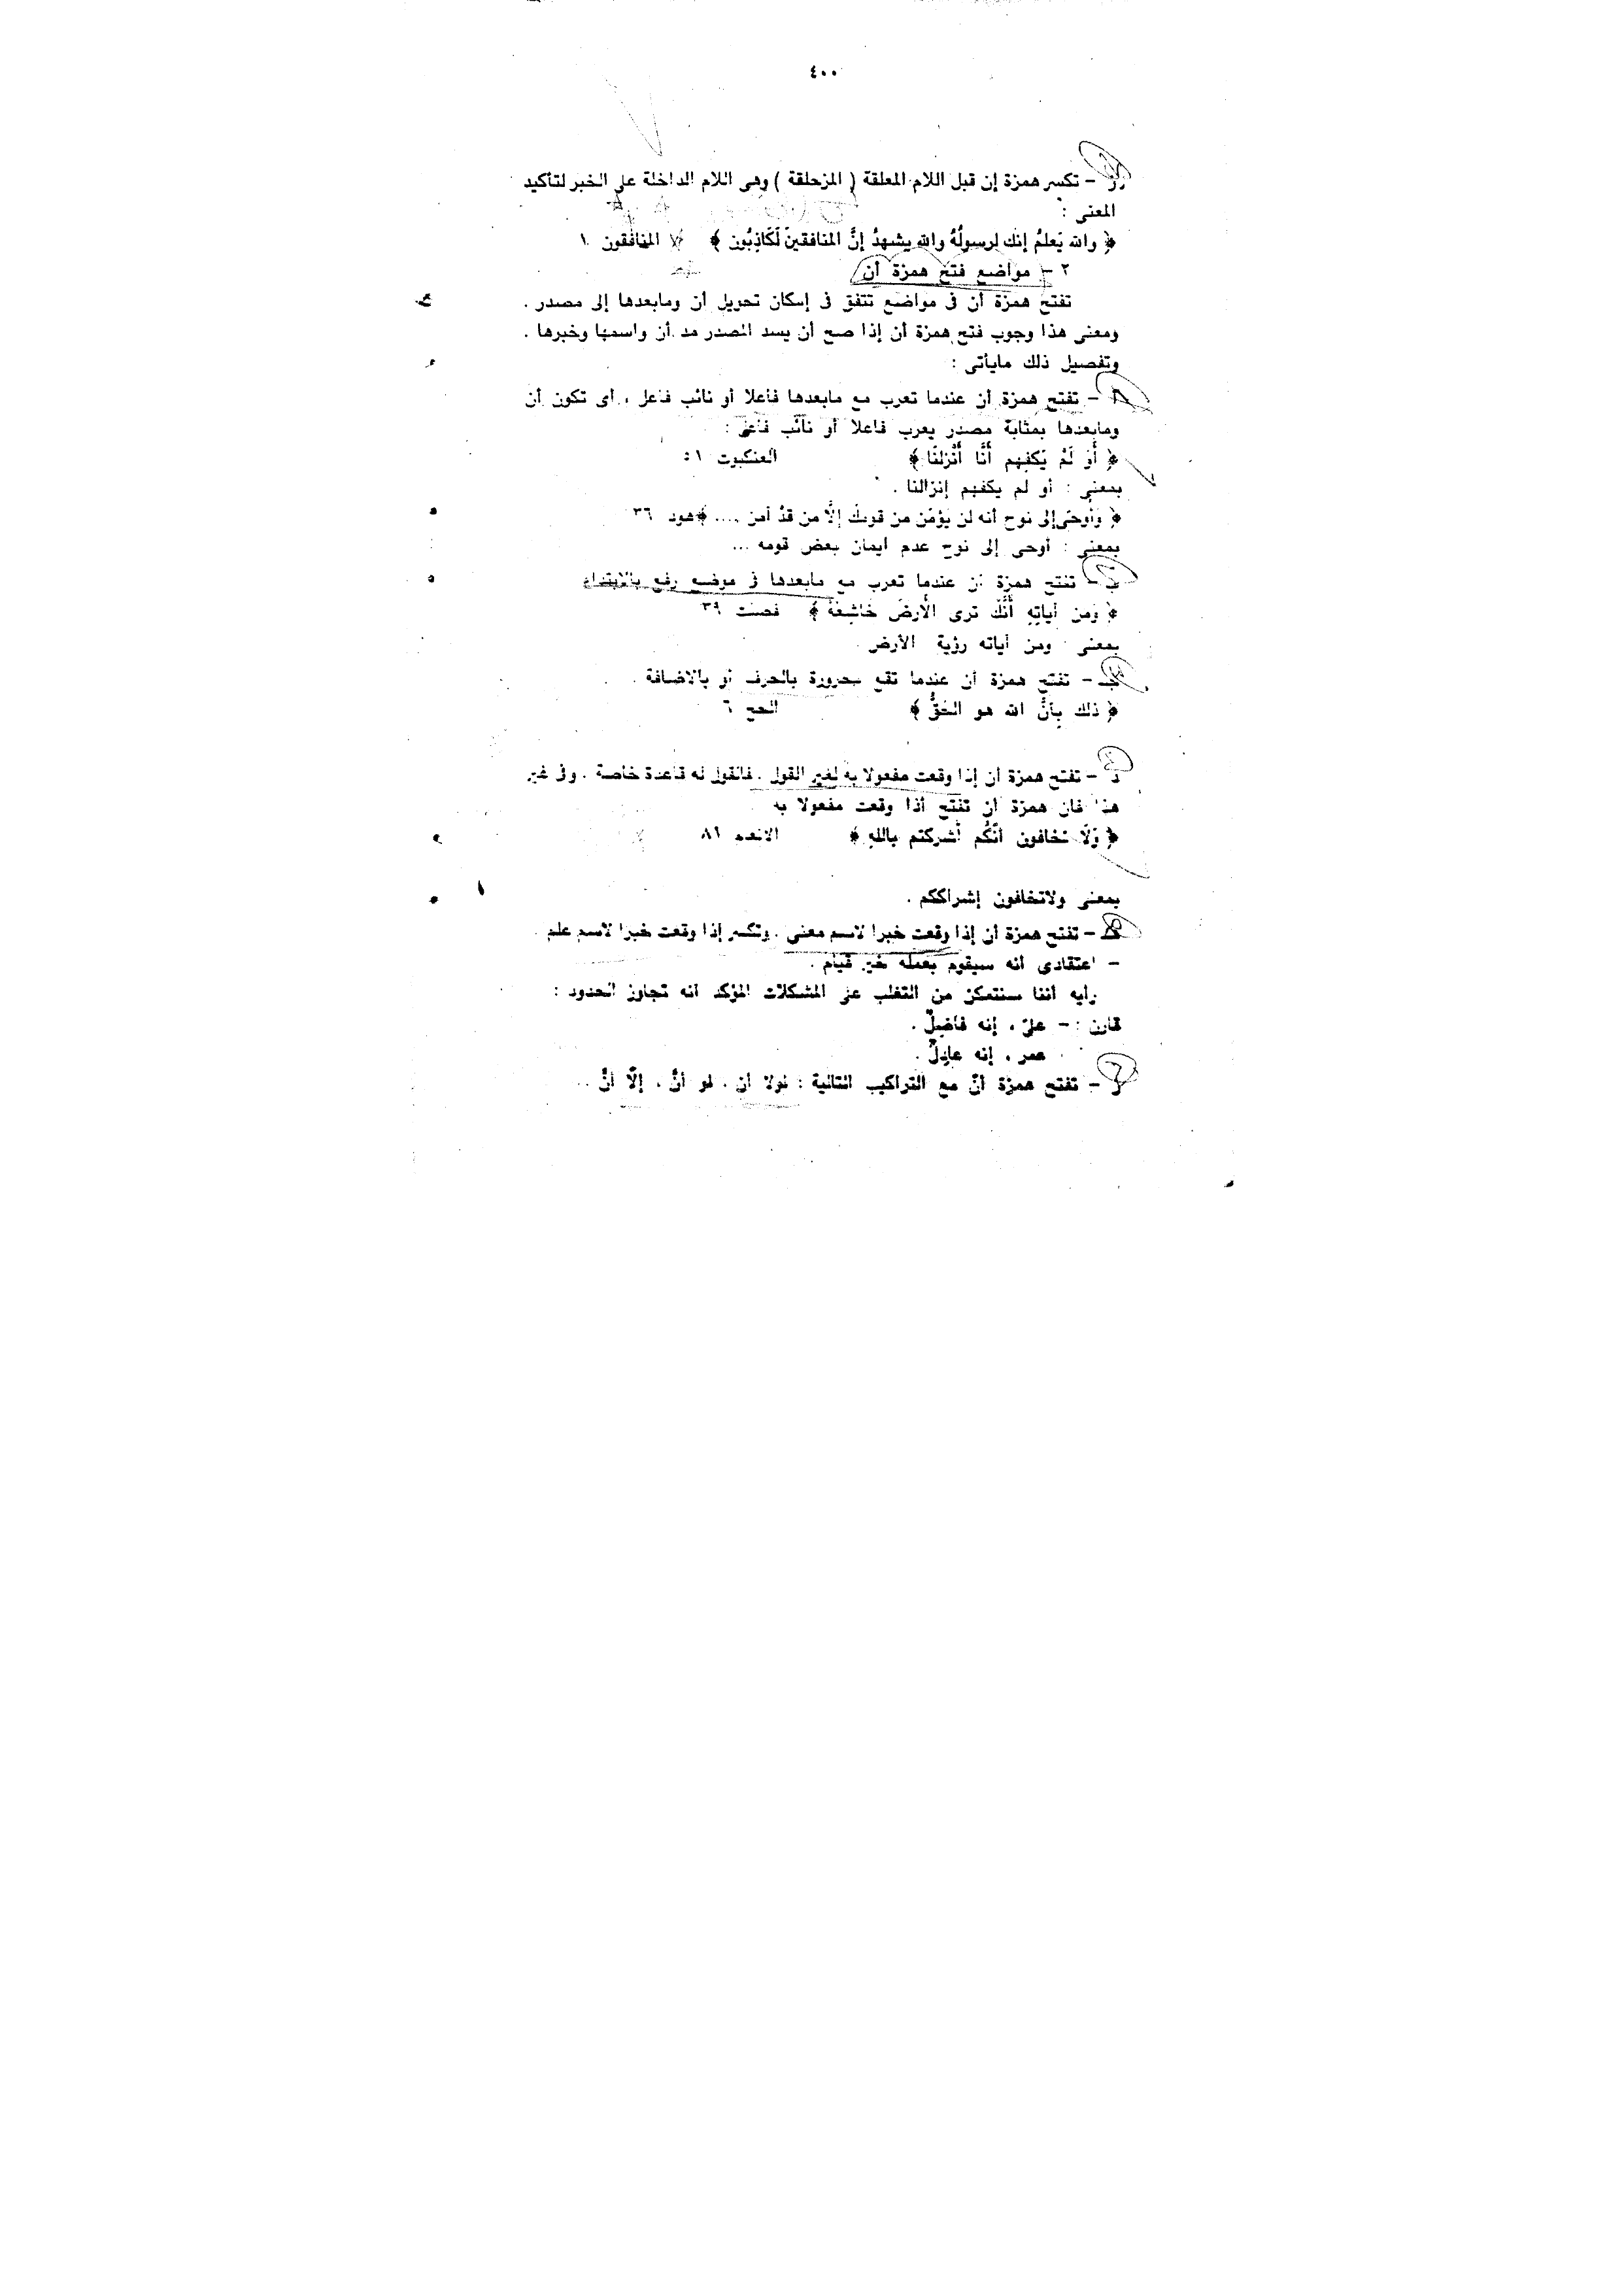 ٤٠٠
و - تكسر همزة إن قبل اللام المعلقة ( المزحلقة ) وهى اللام الداخلة على الخبر لتأكيد
المعنى :
﴿ والله يَعلمُ إنك لرسولُهُ والله يشهدُ إنَّ المنافقينَ لَكَاذِبُون ﴾ المنافقون ١
٢ - مواضع فتح همزة أن
تفتح همزة أن فى مواضع تتفق فى إمكان تحويل أن ومابعدها إلى مصدر .
ومعنى هذا وجوب فتح همزة أن إذا صح أن يسد المصدر مسد أن واسمها وخبرها .
وتفصيل ذلك مايأتى :
أ - تفتح همزة أن عندما تعرب مع مابعدها فاعلا أو نائب فاعل ، أى تكون أن
ومابعدها بمثابة مصدر يعرب فاعلا أو نائب فاعل :
﴿ أَو لَمْ يَكفِهِم أَنَّا أَنْزلنَا ﴾ العنكبوت ٥١
بمعنى : أو لم يكفهم إنزالنا .
﴿ وَأوحَى إلى نوح أنه لن يؤمن من قومكَ إلَّا من قدْ آمن .... ﴾ هود ٣٦
بمعنى : أوحى إلى نوح عدم ايمان بعض قومه ...
ب - تفتح همزة أن عندما تعرب مع مابعدها فى موضع رفع بالابتداء
﴿ ومن آياتِهِ أَنَّكَ ترى الأَرضَ خَاشِعَةً ﴾ فصلت ٣٩
بمعنى ومن آياته رؤية الأرض
جـ - تفتح همزة أن عندما تقع مجرورة بالحرف أو بالاضافة .
﴿ ذلك بِأنَّ الله هو الحَقُّ ﴾ الحج ٦
د - تفتح همزة أن إذا وقعت مفعولا به لغير القول . فالقول له قاعدة خاصة . وفى غير
هذا فان همزة أن تفتح أذا وقعت مفعولا به
﴿ وَلَا تخافون أنّكُم أَشركتم باللهِ ﴾ الانعام ٨١
بمعنى ولاتخافون إشراككم .
هـ - تفتح همزة أن إذا وقعت خبرا لاسم معنى . وتكسر إذا وقعت خبرا لاسم علم .
- اعتقادى أنه سيقوم بعمله خير قيام .
رأيه أننا سنتمكن من التغلب على المشكلات المؤكد أنه تجاوز الحدود :
قارن : - علىّ ، إنه فاضِلٌ .
عمر ، إنه عادِلٌ .
و - تفتح همزة أنّ مع التراكيب التالية : لولا أن ، لو أنَّ ، إلّا أنَّ ..